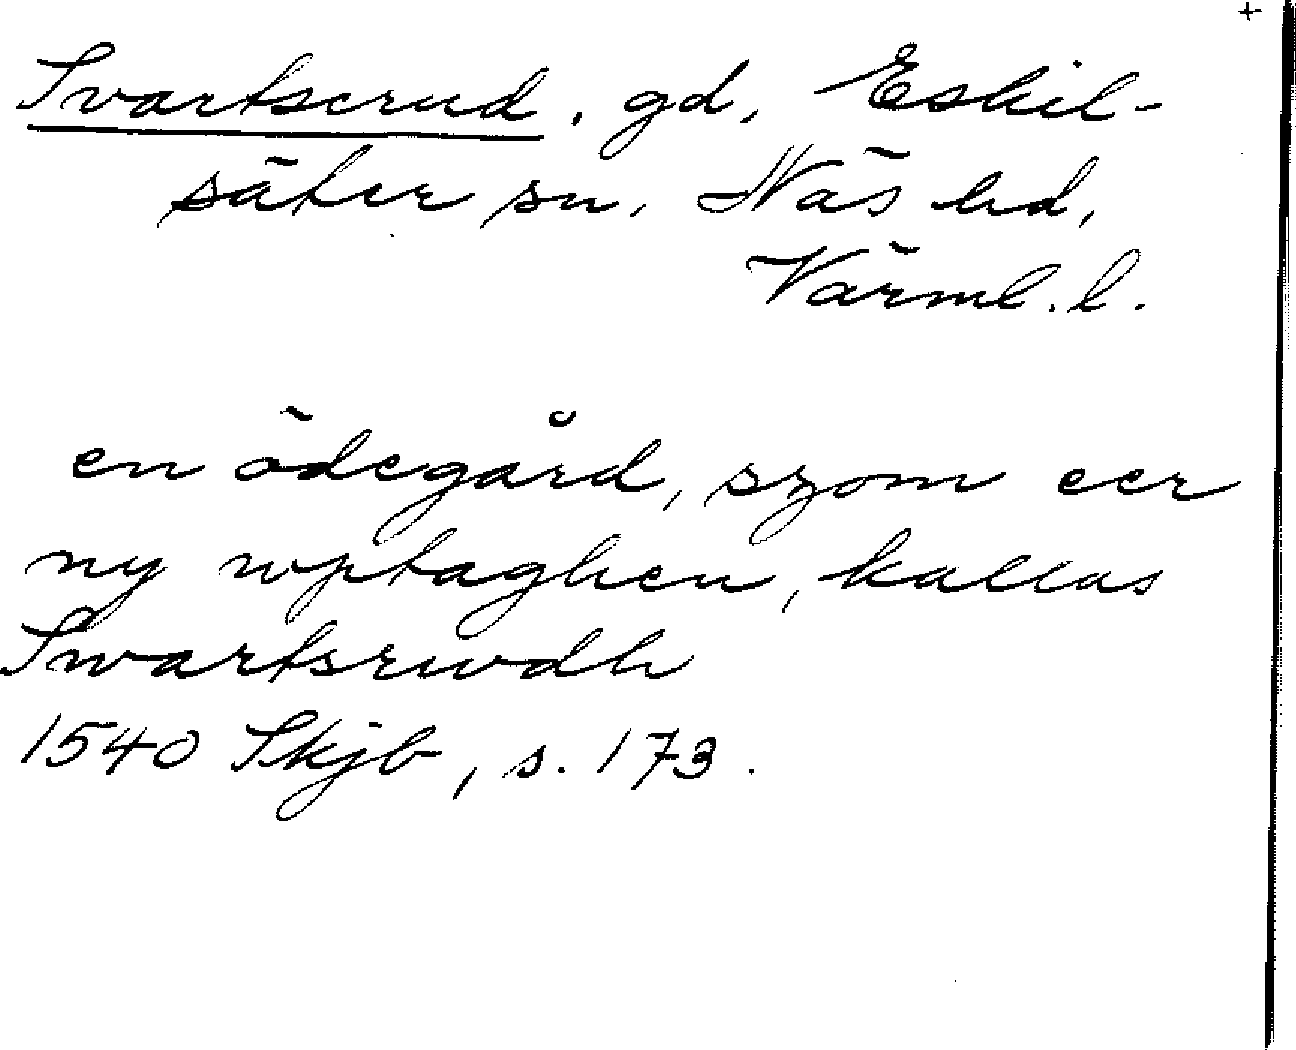 +
Svartserud, gd, Eskil-
säter sn, Näs hd,
Värml. l.
en ödegård, szom eer
ny wptaghen, kallas
Swartsrwdh
1540 Skjb, s. 173.